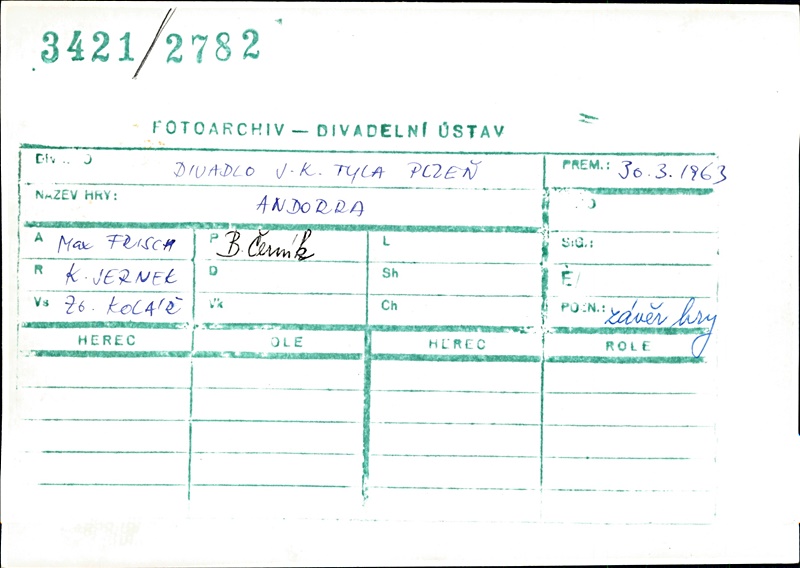 3421/2782
FOTOARCHIV — DIVADELNÍ ÚSTAV
DIVADLO J. K. TYLA PLZEŇ PREM.: 30. 3. 1963
NÁZEV HRY: ANDORRA
A Max FRISCH P B. Černík L SIG.:
R K. JERNEK D Sh
Vs Zb. KOLÁŘ Vk Ch POZN.: závěr hry
HEREC ROLE HEREC ROLE